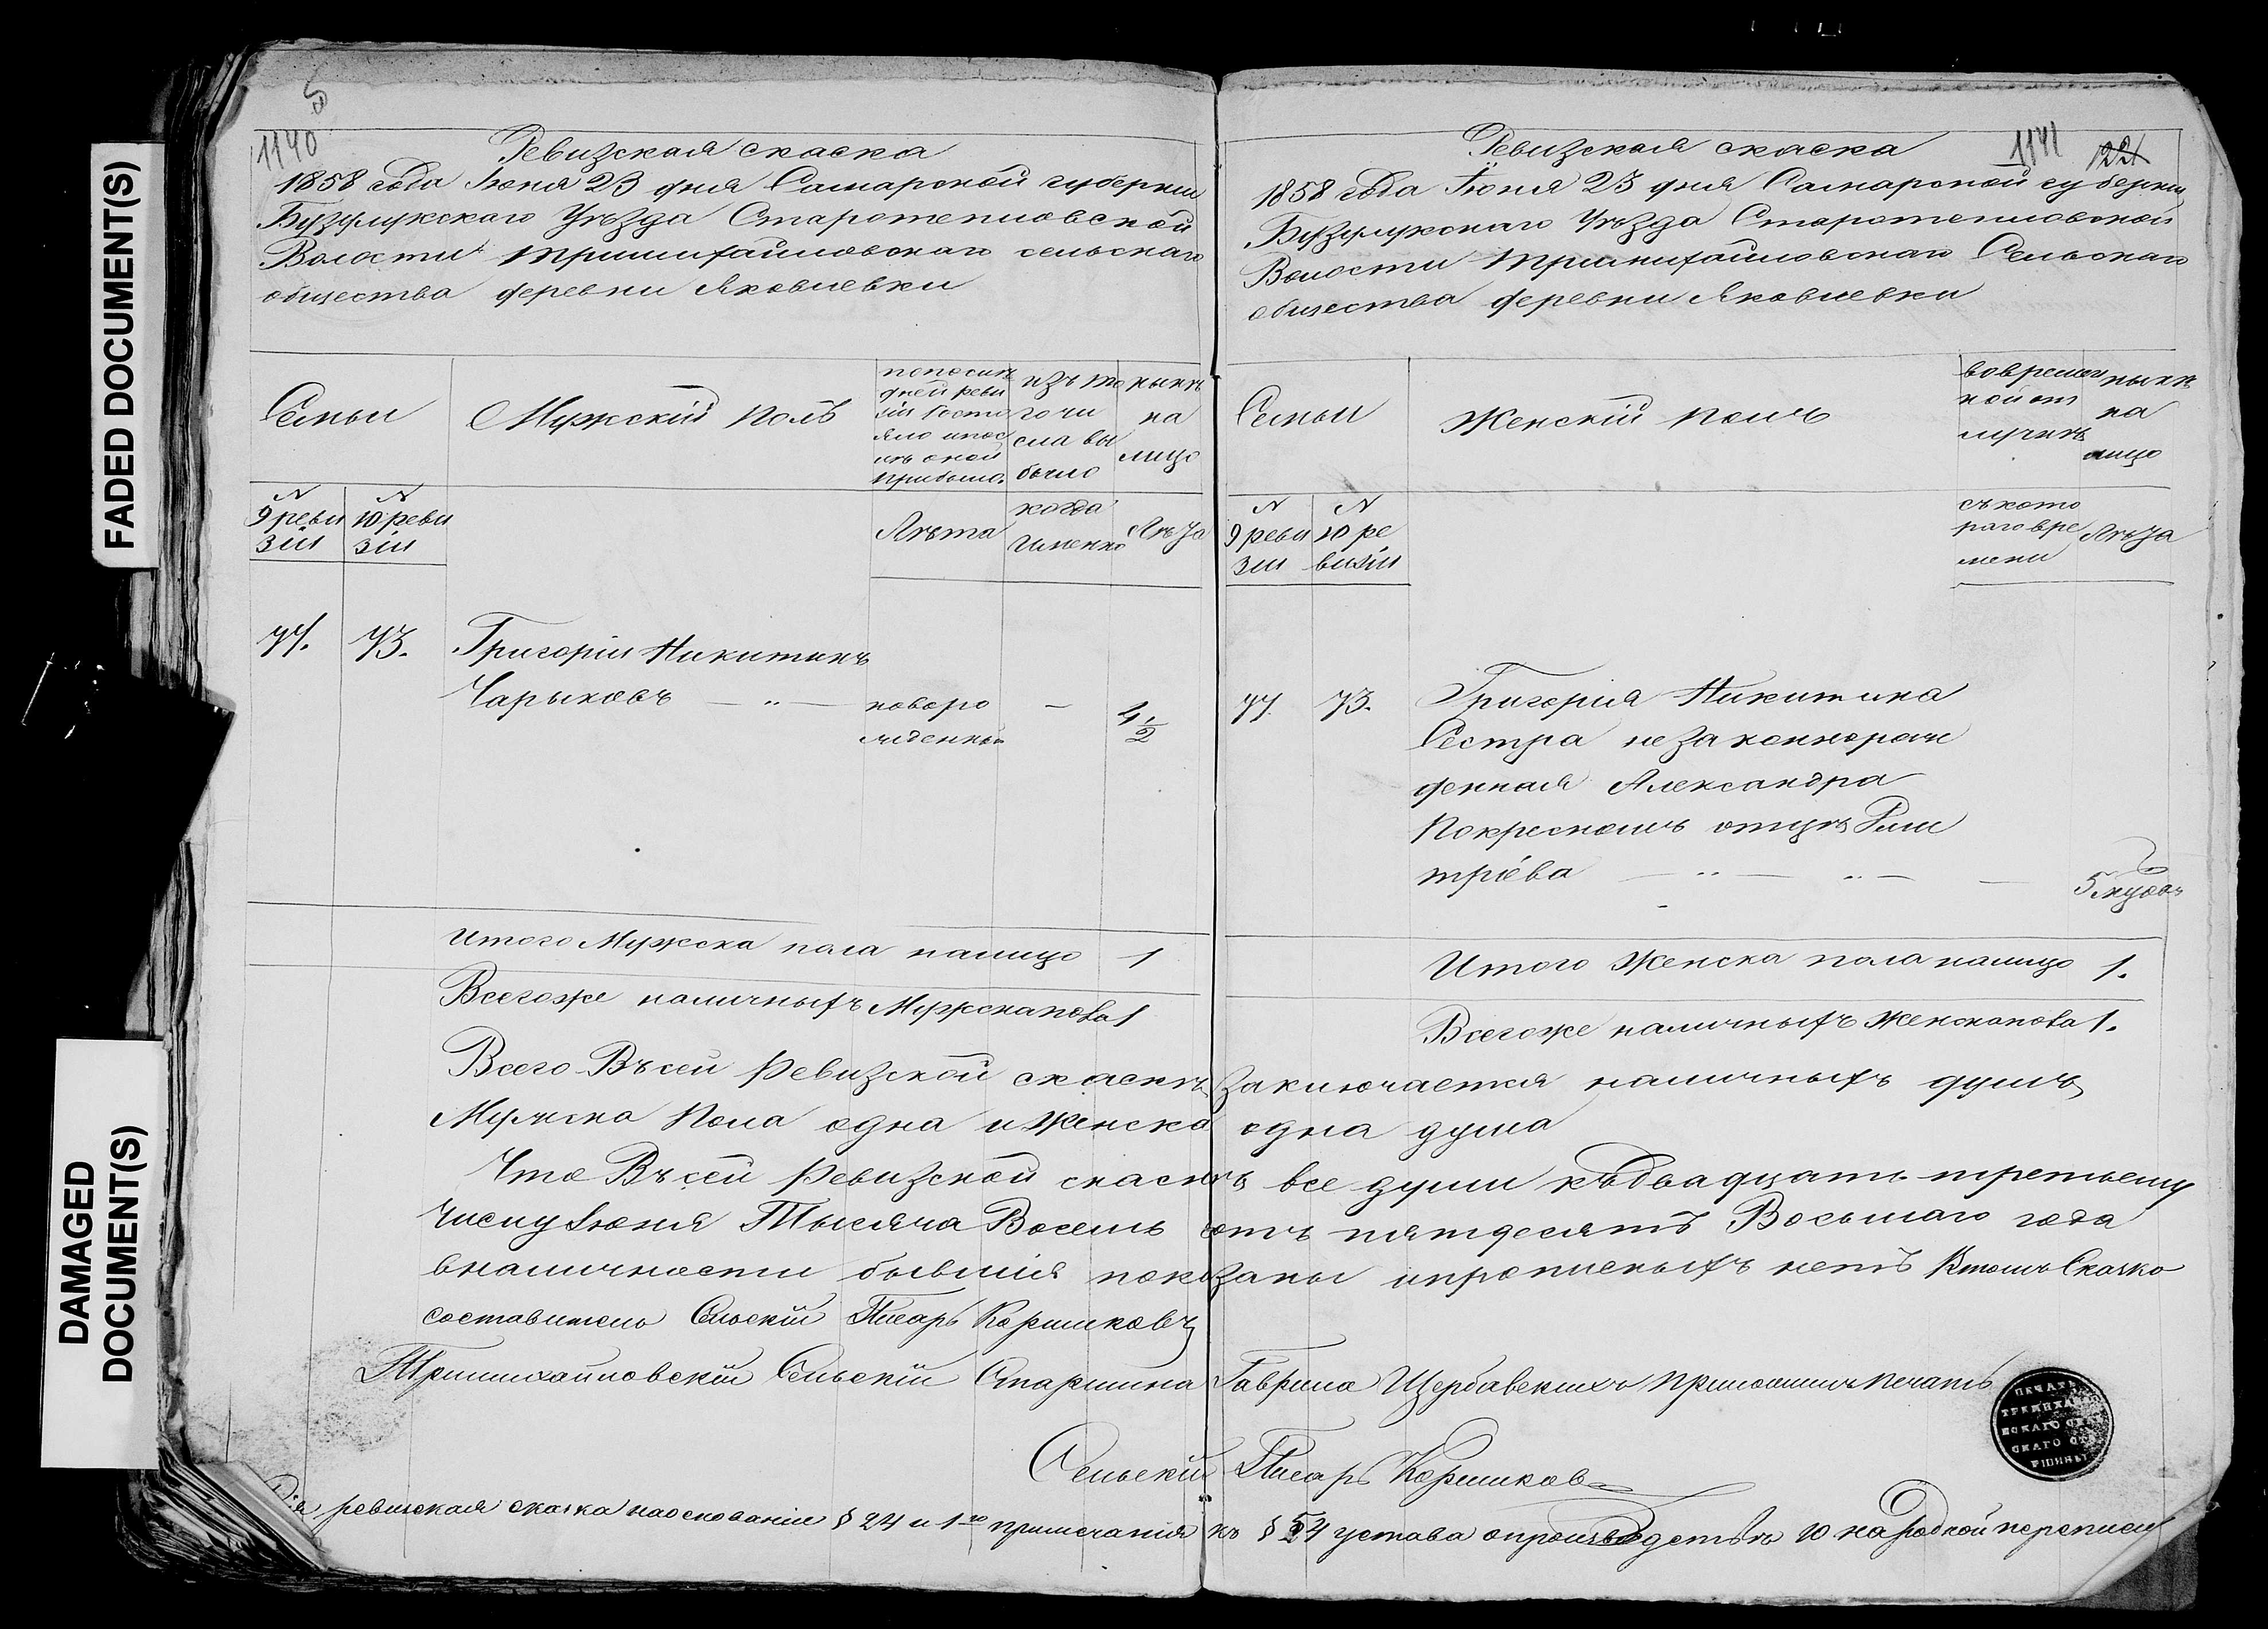 FADED DOCUMENT(S)
DAMAGED
DOCUMENT(S)
5
1140
Ревизская скаска
1858 года Іюня 23 дня Самарской губерніи
Бузулукского Уѣзда Старотепловской
Волости Тримихайловскаго сельскаго
общества деревни Яковлевки
Семьи
Мужскій Полъ
по послѣ
дней реви
зіи состо
яло и пос
лѣ оной
прибыло.
изъ то
го чи
сла вы
было
нынѣ
на
лицо
№
9 реви
зіи
№
10 реви
зіи
Лѣта
когда
именно
Лѣта
77. 73. Григорій Никитинъ
Чарыковъ — „ — новоро — 4 1/2
жденный
Итого Мужска пола налицо 1
Всегоже наличныхъ Мужска пола 1
1141 122
Ревизская скаска
1858 года Іюня 23 дня Самарской губерніи
Бузулукскаго Уѣзда Старотепловской
Волости Тримихайловскаго Сельскаго
общества деревни Яковлевки
Семьи
Женскій полъ
во времен
ной от
лучкѣ
нынѣ
на
лицо
№
9 реви
зіи
№
10 ре
визіи
съ кото
раго вре
мени
Лѣта
77. 73. Григорія Никитина
Сестра незаконнорож
денная Александра
По кресномъ отцѣ Дми
тріева — „ — „ — —
Итого Женска пола налицо 1.
Всегоже наличныхъ женска пола 1.
Всего Въ сей Ревизской скаскѣ заключается наличныхъ душъ
Мужска Пола одна и Женска одна душа
Что Въ сей Ревизской скаскѣ все души къ двадцать третьему
числу Іюня Тысяча Восемь сотъ пятдесятъ Восьмаго года
в наличности бывшія показаны и прописныхъ нетъ В томъ
составитель Сельскій Писарь Коршиковъ
Тримихайловскій Сельскій Старшина Гаврила приложилъ печать
ПЕЧАТЬ
Сельскій Писарь Коршиковъ
Сія ревизская скаска на основаніи § 24 и 1го примечанія къ § 54 устава о производствѣ 10 народной переписи